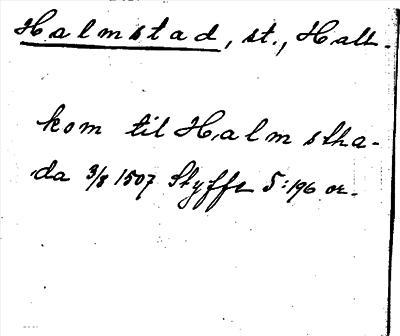 Halmstad, st., Hall.
kom til Halmstha-
da 3/8 1507 Styffe 5:196 or.